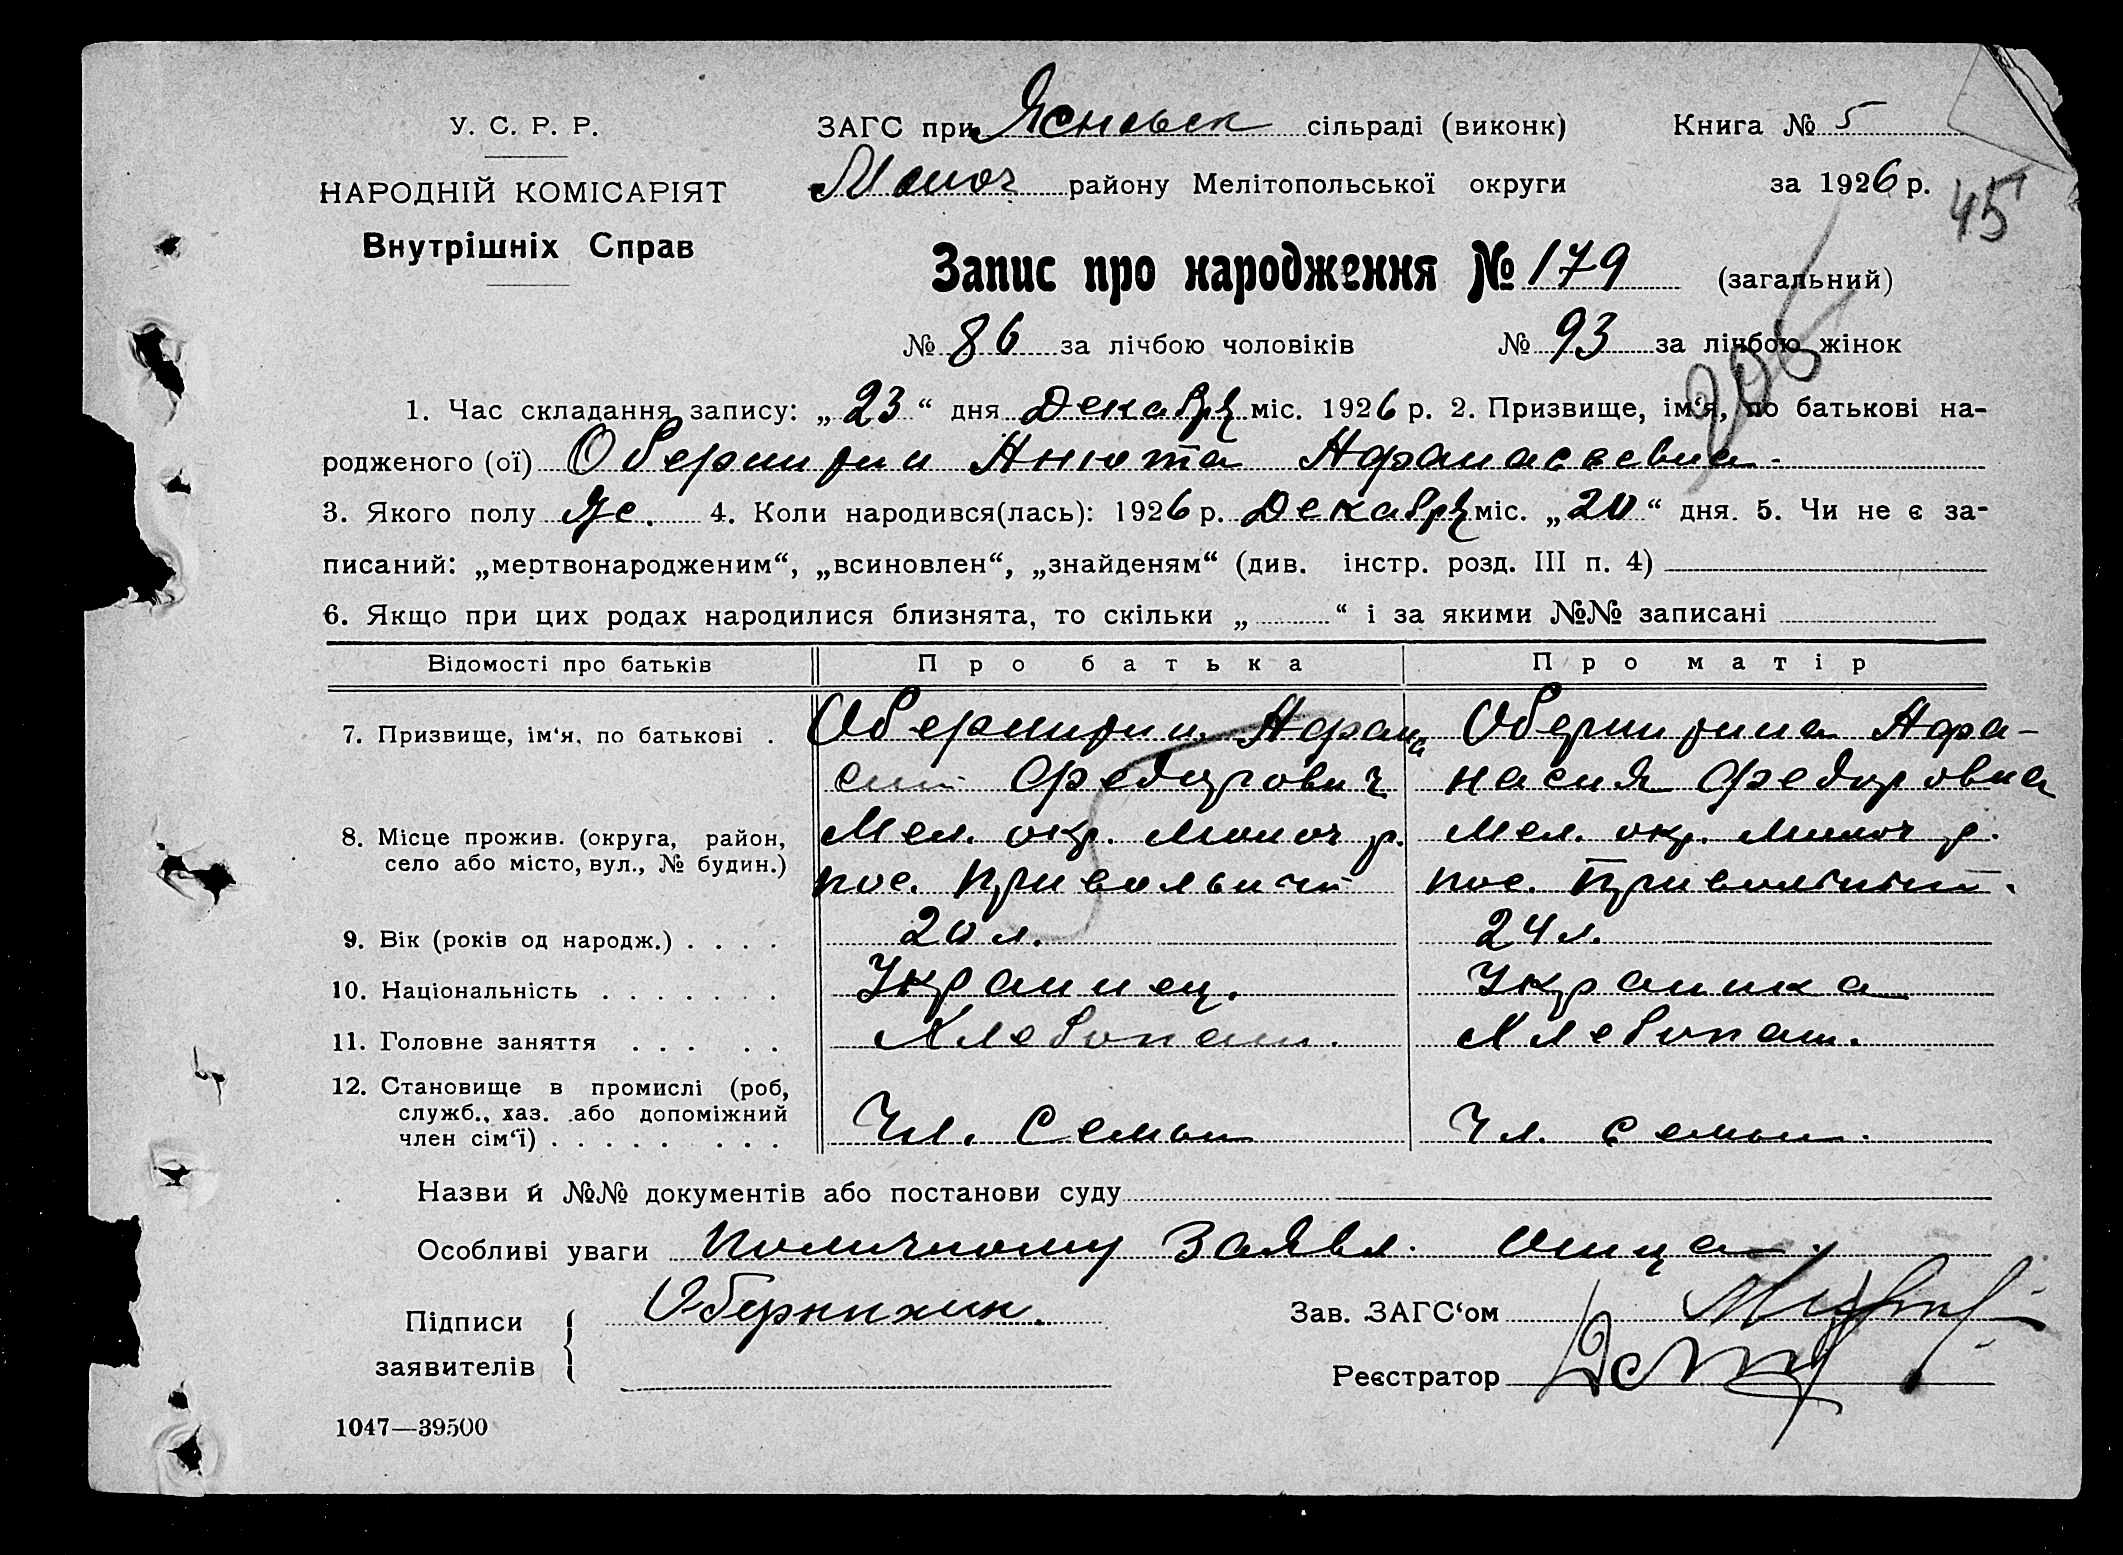 У. С. Р. Р.
НАРОДНІЙ КОМІСАРІЯТ
Внутрішніх Справ
ЗАГС при Ясновск сільраді (виконк)
Молоч району Мелітопольської округи
Книга № 5
за 1926 р.
45
Запис про народження № 179 (загальний)
№ 86 за лічбою чоловіків № 93 за лічбою жінок
1. Час складання запису: „23“ дня Декабря міс. 1926 р. 2. Призвище, ім‘я, по батькові на-
родженого (ої) Обернихин Анюта Афанасьевна
3. Якого полу Ж. 4. Коли народився(лась): 1926 р. Декабря міс. „20“ дня. 5. Чи не є за-
писаний: „мертвонародженим“, „всиновлен“, „знайденям“ (див. інстр. розд. III п. 4)
6. Якщо при цих родах народилися близнята, то скільки „ “ і за якими №№ записані
Відомості про батьків Про батька Про матір
7. Призвище, ім‘я, по батькові . Обернихин Афана Обернихина Афа-
сий Федорович насия Федоровна
8. Місце прожив. (округа, район, Мел. окр. Молоч р. Мел. окр. Молоч р.
село або місто, вул., № будин.) пос. Привольный пос. Привольный.
9. Вік (років од народж.) . . . . 20 л. 24 л.
10. Національність . . . . . . . Украинец. Украинка
11. Головне заняття . . . . . Хлебопаш. Хлебопаш.
12. Становище в промислі (роб,
служб., хаз. або допоміжний
член сім‘ї) . . . . . . . . . Чл. Семьи Чл. семьи.
Назви й №№ документів або постанови суду
Особливі уваги по личному заявл. отца.
Підписи
заявителів
Обернихин
Зав. ЗАГС‘ом
Реєстратор
1047—39500